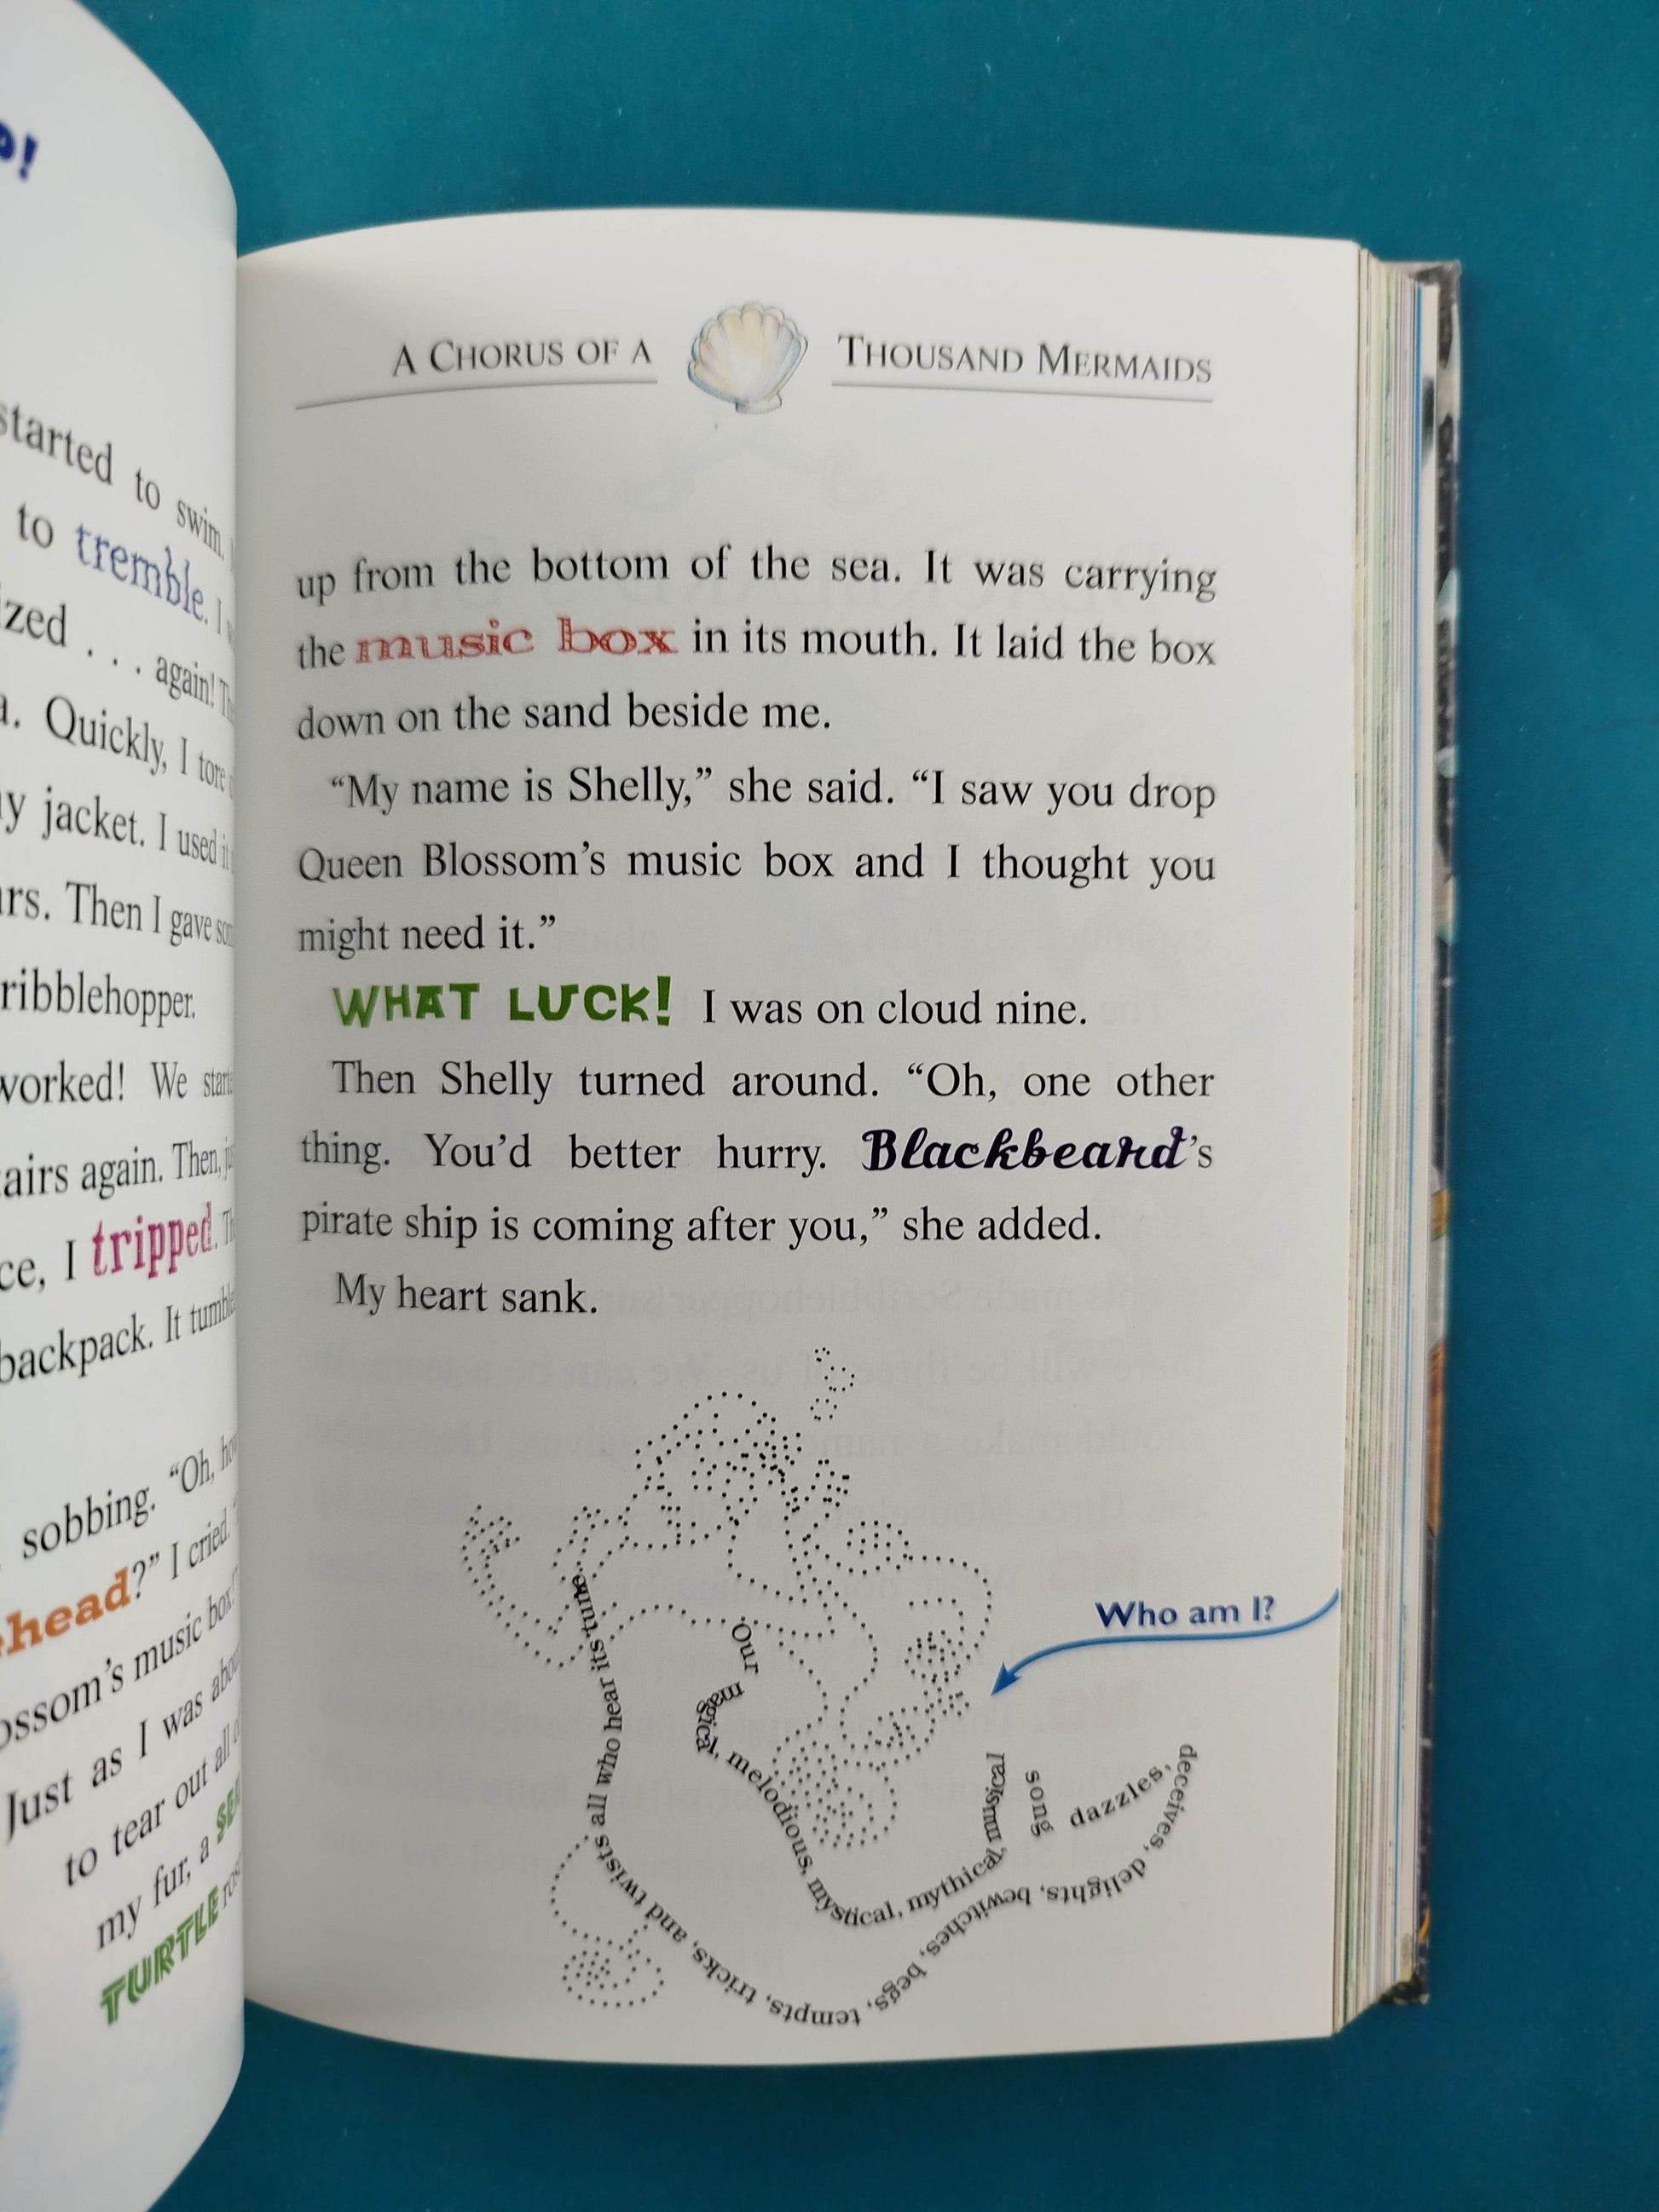 started to swim.
to tremble. I
. . . again!
Quickly, I tore
jacket. I used it
Then I gave
worked! We
again. Then,
I tripped.
backpack. It
sobbing. "Oh,
head?" I cried.
music box!
Just as I was
to tear out all
my fur, a
TURTLE
A CHORUS OF A THOUSAND MERMAIDS
up from the bottom of the sea. It was carrying
the music box in its mouth. It laid the box
down on the sand beside me.
“My name is Shelly,” she said. “I saw you drop
Queen Blossom’s music box and I thought you
might need it.”
WHAT LUCK! I was on cloud nine.
Then Shelly turned around. “Oh, one other
thing. You’d better hurry. Blackbeard’s
pirate ship is coming after you,” she added.
My heart sank.
Who am I?
Our magical, melodious, mystical, mythical, musical song dazzles, deceives, delights, bewitches, begs, tempts, tricks, and twists all who hear its tune.